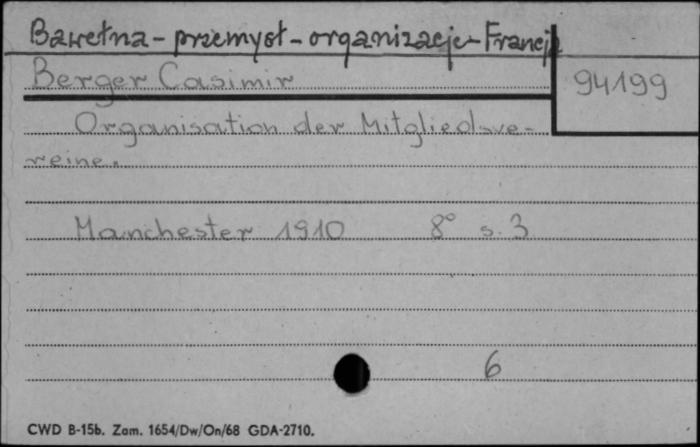 Bawełna - przemysł - organizacje - Francja
Berger Casimir
94199
Organisation der Mitgliedsve-
reine.
Manchester 1910 8° s. 3
6
CWD B-15b. Zam. 1654/Dw/On/68 GDA-2710.